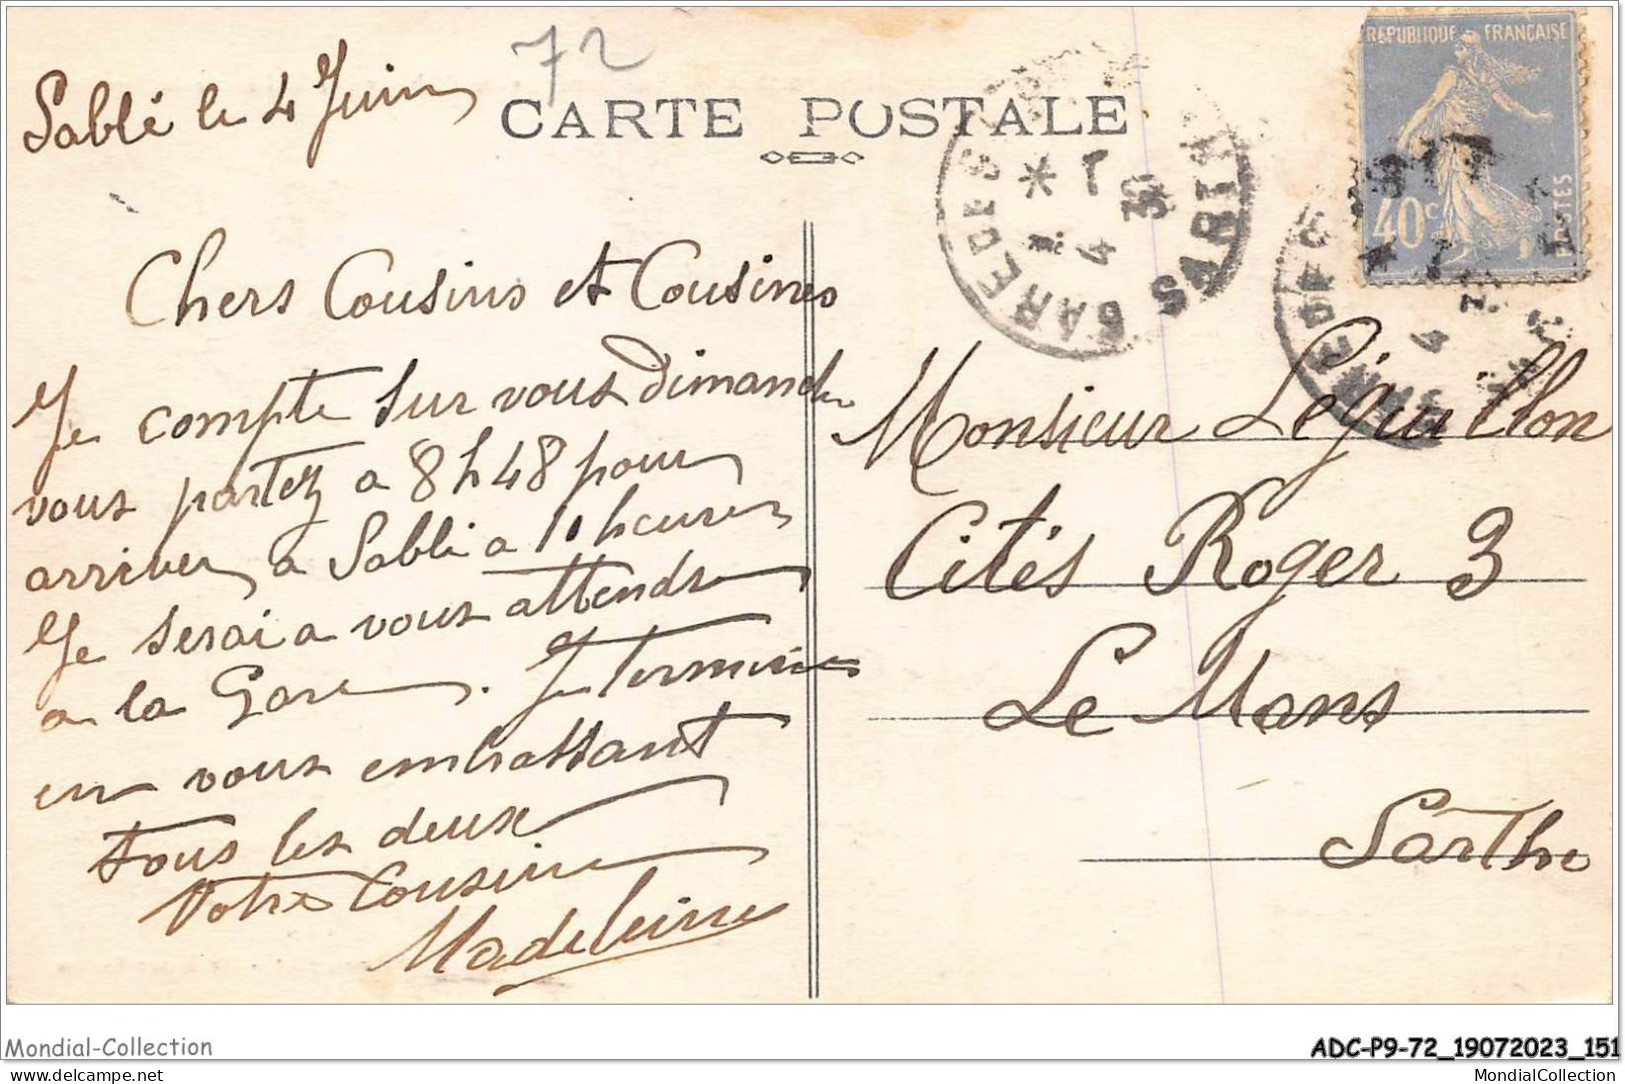 72
Sablé le 4 Juin
CARTE POSTALE
REPUBLIQUE FRANÇAISE
40c
POSTES
GARE DE S
SARTH
* 1
4
30
Chers Cousins et Cousines
Je compte sur vous Dimanche
vous partez a 8 h 48 pour
arriver a Sablé a 11 heures
Je serai a vous attendre
a la Gare. Je termine
en vous embrassant
tous les deux
Votre Cousine
Madeleine
Monsieur Léguillon
Cités Roger 3
Le Mans
Sarthe
Mondial-Collection
ADC-P9-72_19072023_151
delcampe.net
MondialCollection